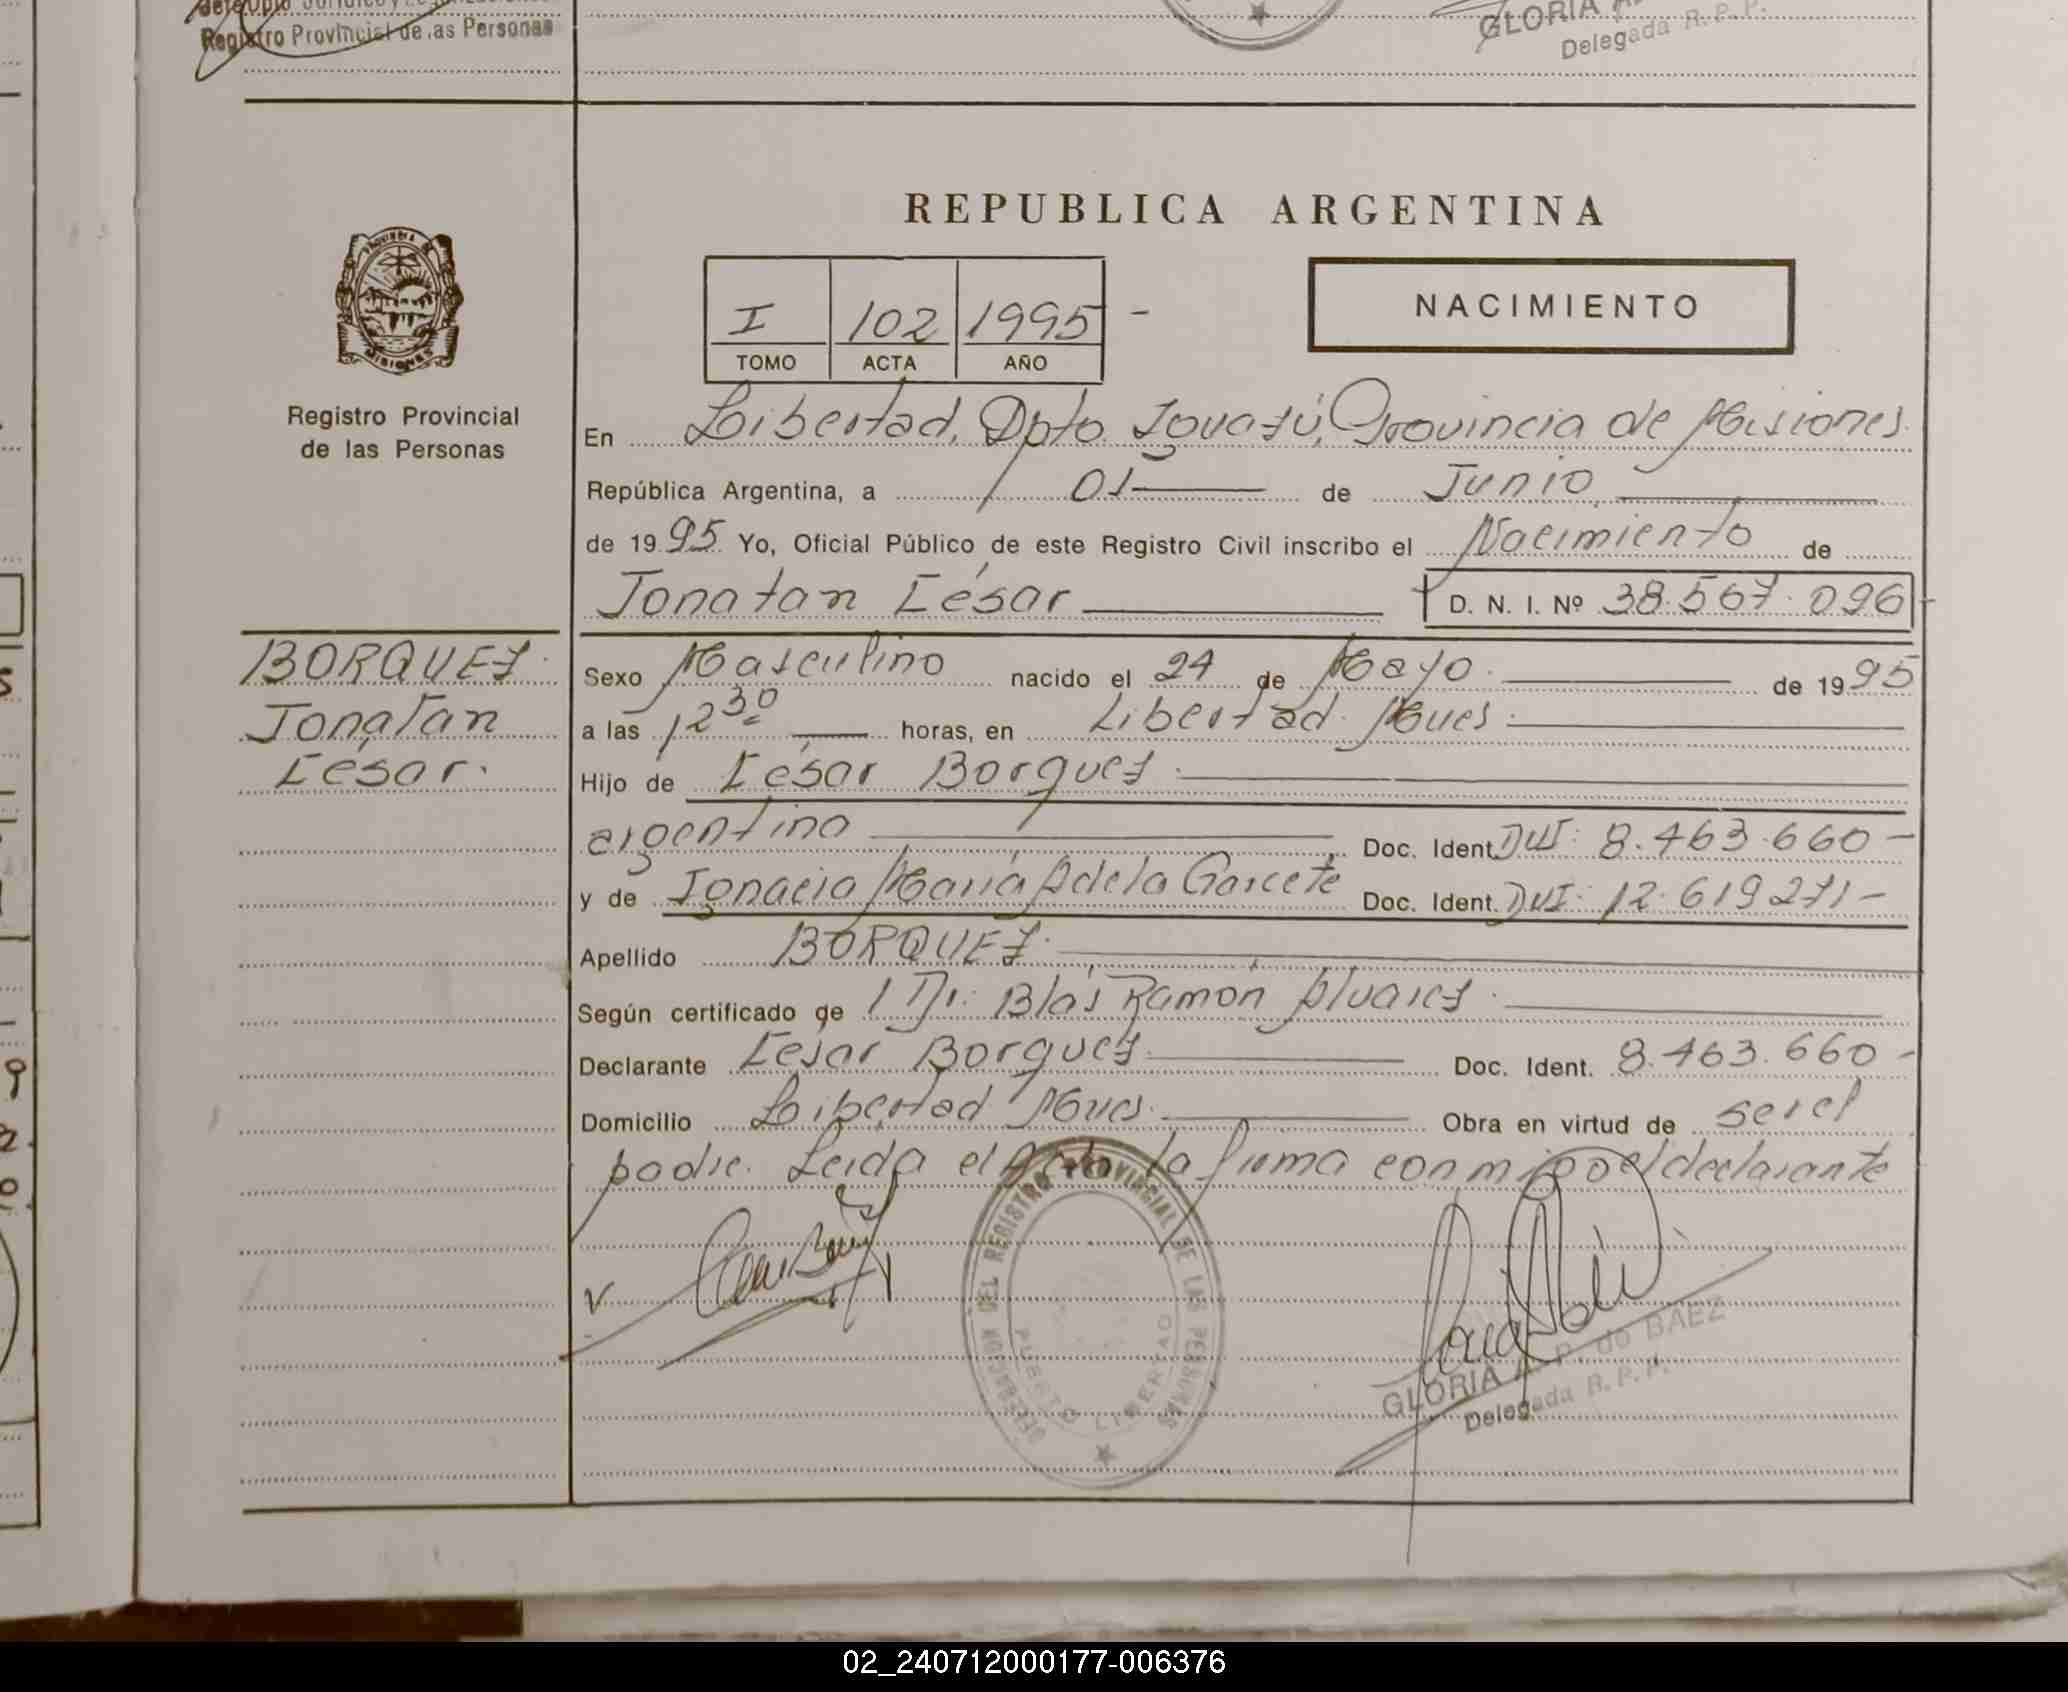 Registro Provincial de las Personas
GLORIA
Delegada R. P. P.
REPUBLICA ARGENTINA
I 102 1995 -
TOMO ACTA AÑO
NACIMIENTO
MISIONES
Registro Provincial
de las Personas
En Libertad, Dpto. Iguazú, Provincia de Misiones.
República Argentina, a 01 de Junio
de 1995 Yo, Oficial Público de este Registro Civil inscribo el Nacimiento de
Jonatan César D. N. I. Nº 38.567.096
BORQUEZ.
Jonatan
César.
Sexo Masculino nacido el 24 de Mayo. de 1995
a las 12 30 horas, en Libertad. Mnes.
Hijo de César Borquez.
argentino Doc. Ident. DNI: 8.463.660-
y de Ignacia María Adela Garcete Doc. Ident. DNI: 12.619271-
Apellido BORQUEZ.
Según certificado de Dr. Blás Ramón Alvarez.
Declarante César Borquez Doc. Ident. 8.463.660-
Domicilio Libertad Mnes. Obra en virtud de ser el
padre. Leida el Acta la firma conmigo el declarante
DELEGACION DEL REGISTRO PROVINCIAL DE LAS PERSONAS
PUERTO LIBERTAD
GLORIA A. P. de BAEZ
Delegada R. P. P.
02_240712000177-006376